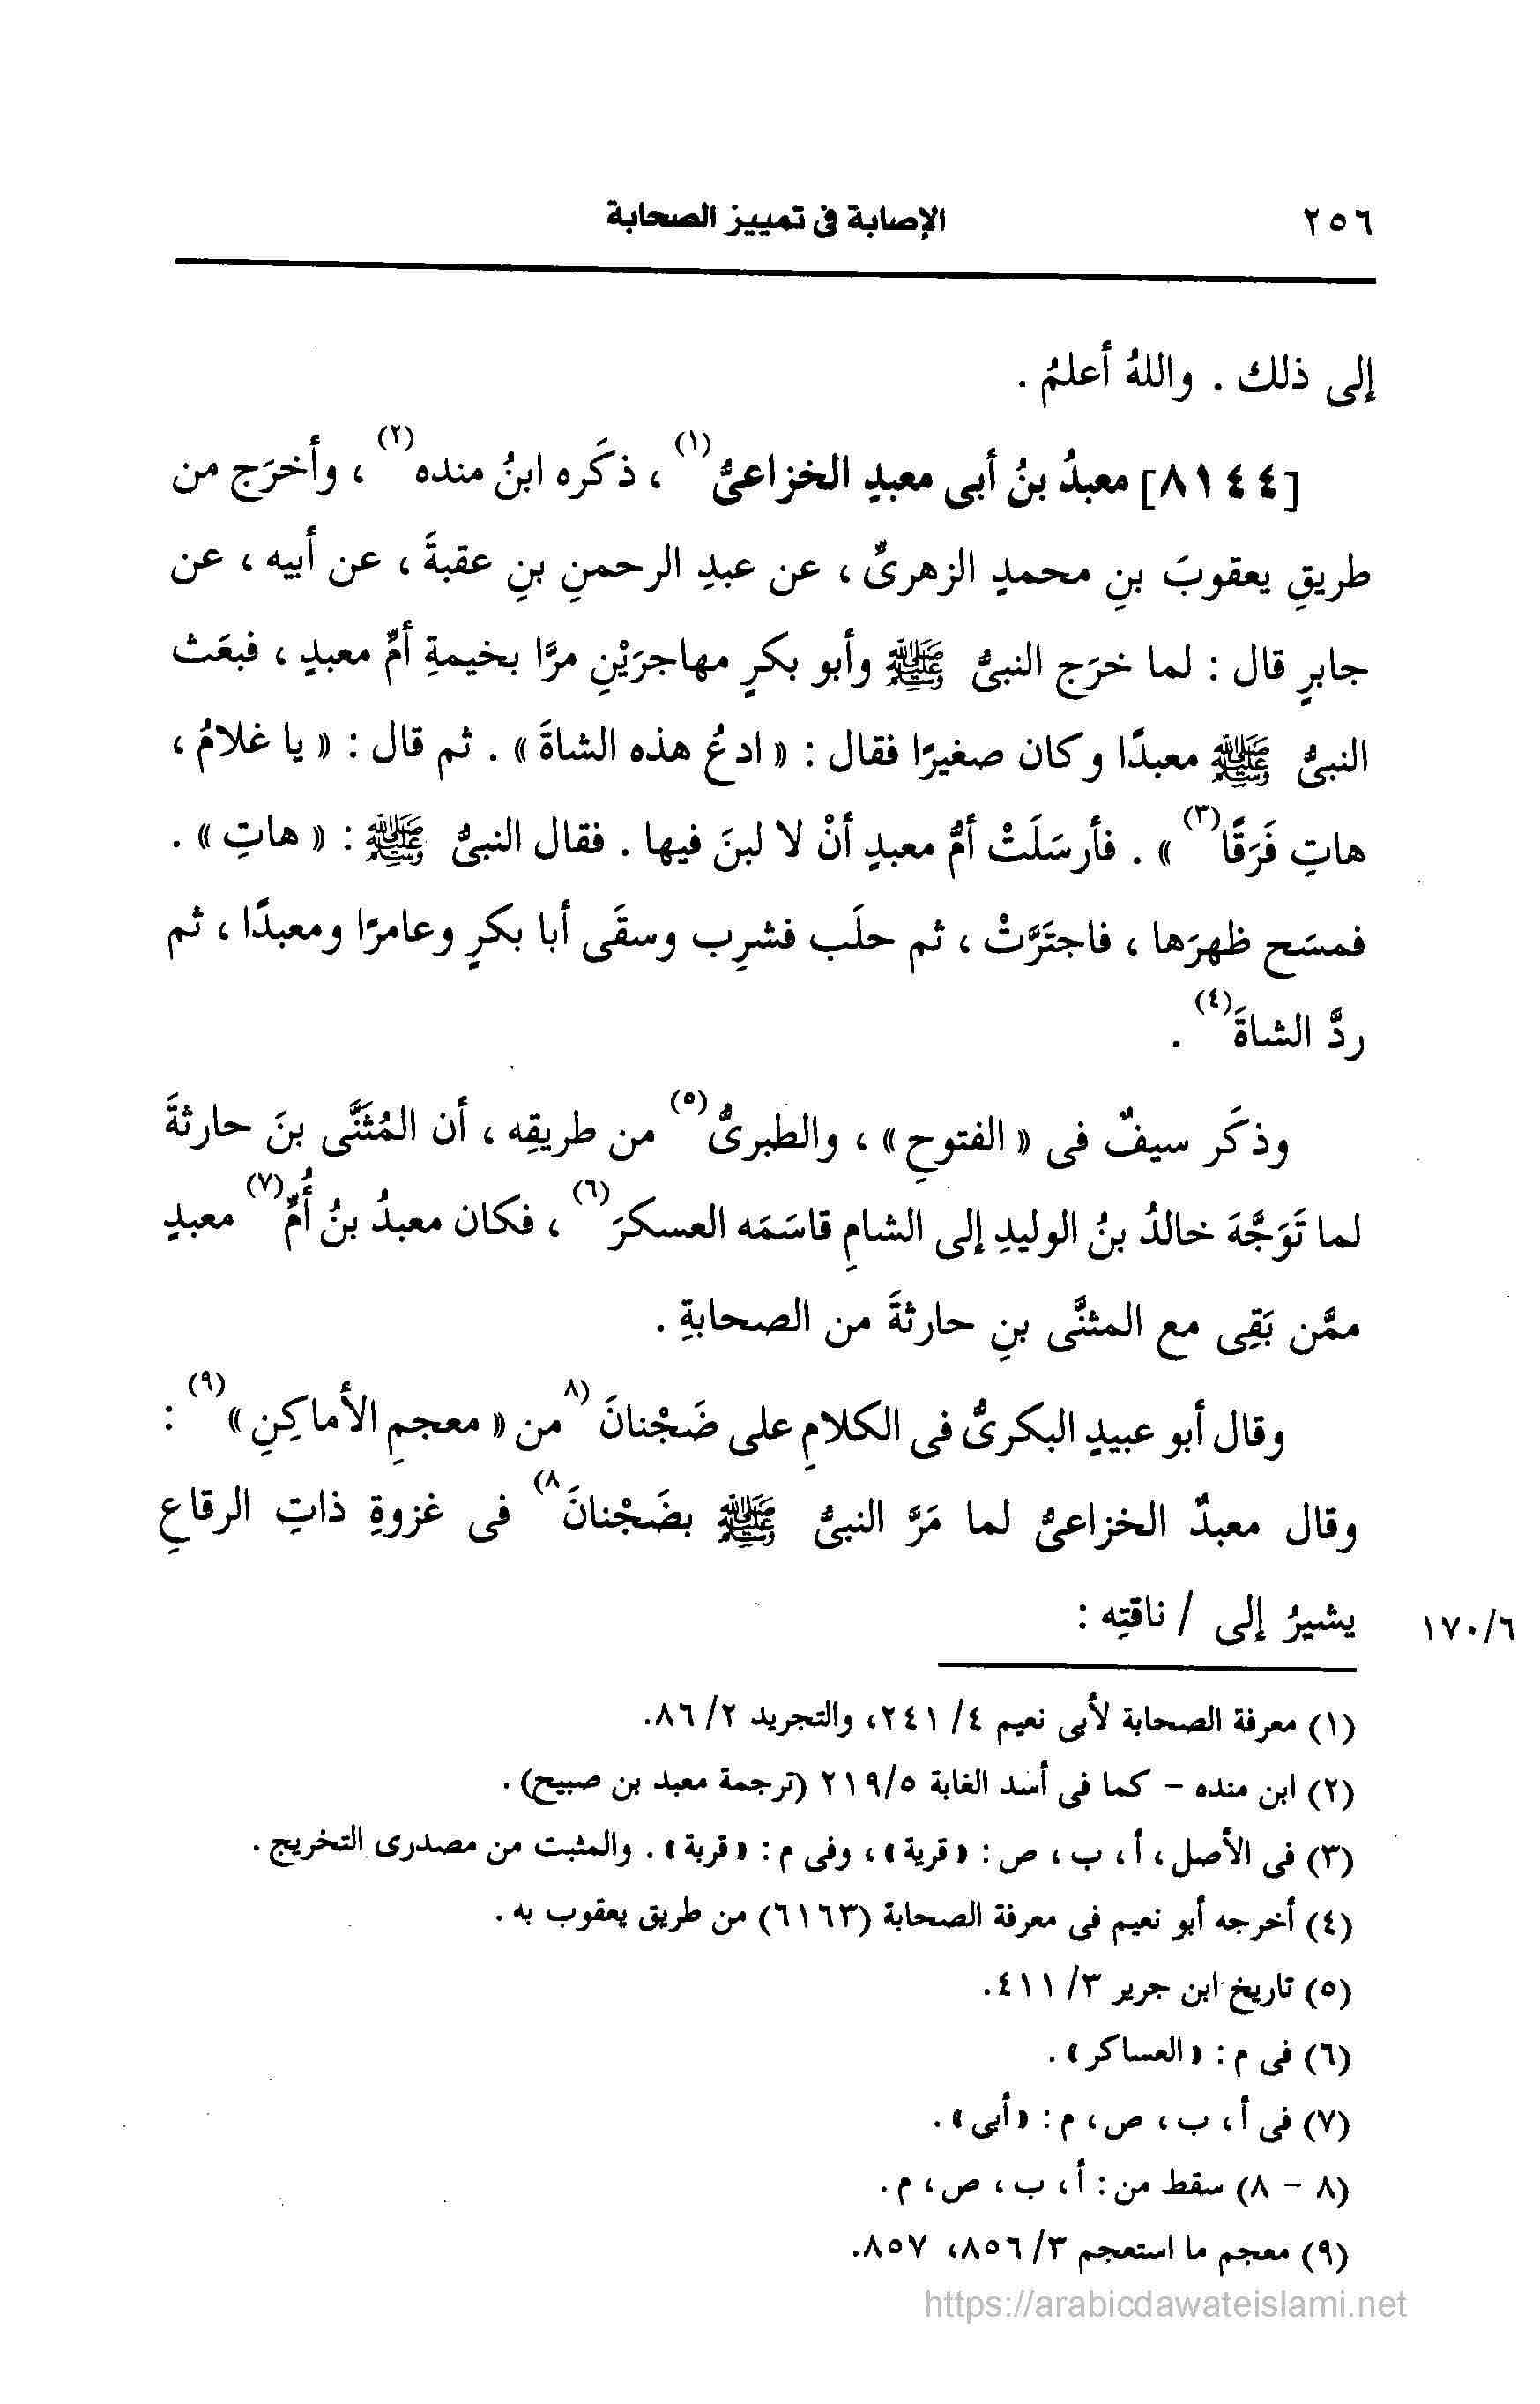 ٢٥٦ الإصابة فى تمييز الصحابة
إلى ذلك . واللهُ أعلمُ .
[٨١٤٤] معبدُ بنُ أبى معبدٍ الخزاعىُّ(١) ، ذكَره ابنُ منده(٢) ، وأخرَج من
طريقِ يعقوبَ بنِ محمدٍ الزهرىِّ ، عن عبدِ الرحمنِ بنِ عقبةَ ، عن أبيه ، عن
جابرٍ قال : لما خرَج النبىُّ ﷺ وأبو بكرٍ مهاجرَيْنِ مرَّا بخيمةِ أمِّ معبدٍ ، فبعَث
النبىُّ ﷺ معبدًا وكان صغيرًا فقال : « ادعُ هذه الشاةَ » . ثم قال : « يا غلامُ ،
هاتِ فَرَقًا(٣) » . فأرسَلَتْ أمُّ معبدٍ أنْ لا لبنَ فيها . فقال النبىُّ ﷺ : « هاتِ » .
فمسَح ظهرَها ، فاجتَرَّتْ ، ثم حلَب فشرِب وسقَى أبا بكرٍ وعامرًا ومعبدًا ، ثم
ردَّ الشاةَ(٤) .
وذكَر سيفٌ فى « الفتوحِ » ، والطبرىُّ(٥) من طريقِه ، أن المُثَنَّى بنَ حارثةَ
لما تَوَجَّهَ خالدُ بنُ الوليدِ إلى الشامِ قاسَمَه العسكرَ(٦) ، فكان معبدُ بنُ أُمِّ(٧) معبدٍ
ممَّن بَقِى مع المثنَّى بنِ حارثةَ من الصحابةِ .
وقال أبو عبيدٍ البكرىُّ فى الكلامِ على ضَجْنانَ (٨من « معجمِ الأماكِنِ »(٩) :
وقال معبدٌ الخزاعىُّ لما مَرَّ النبىُّ ﷺ بضَجْنانَ٨) فى غزوةِ ذاتِ الرقاعِ
يشيرُ إلى / ناقتِه :
١٧٠/٦
(١) معرفة الصحابة لأبى نعيم ٤/ ٢٤١، والتجريد ٢/ ٨٦.
(٢) ابن منده - كما فى أسد الغابة ٢١٩/٥ (ترجمة معبد بن صبيح) .
(٣) فى الأصل ، أ ، ب ، ص : «قرية» ، وفى م : «قربة» . والمثبت من مصدرى التخريج .
(٤) أخرجه أبو نعيم فى معرفة الصحابة (٦١٦٣) من طريق يعقوب به .
(٥) تاريخ ابن جرير ٣/ ٤١١.
(٦) فى م : «العساكر» .
(٧) فى أ ، ب ، ص ، م : «أبى» .
(٨ - ٨) سقط من : أ ، ب ، ص ، م .
(٩) معجم ما استعجم ٣/ ٨٥٦، ٨٥٧.
https://arabicdawateislami.net